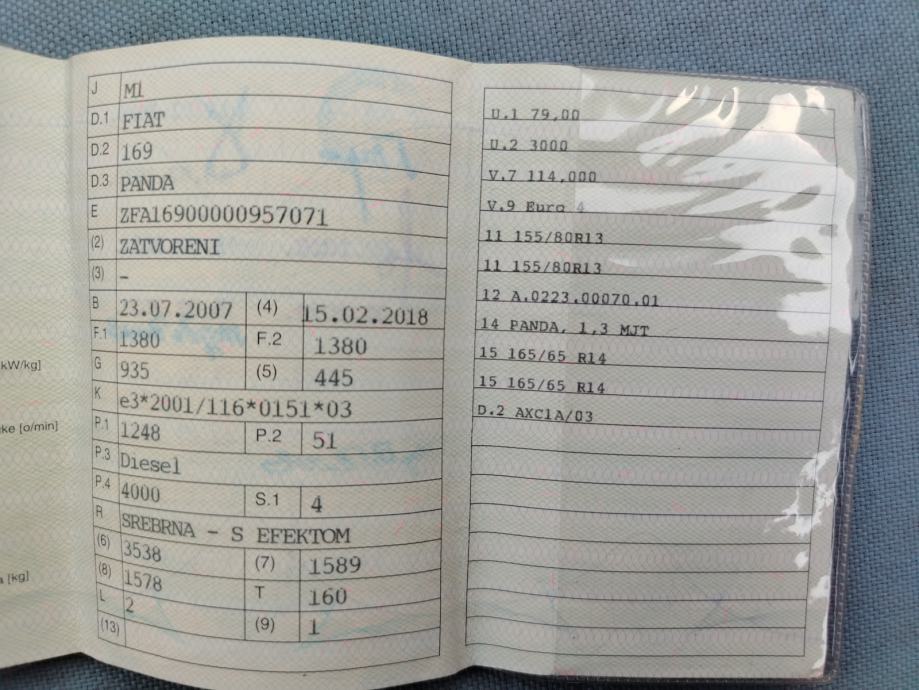 J M1
D.1 FIAT
D.2 169
D.3 PANDA
E ZFA16900000957071
(2) ZATVORENI
(3) -
B 23.07.2007 (4) 15.02.2018
F.1 1380 F.2 1380
G 935 (5) 445
K e3*2001/116*0151*03
P.1 1248 P.2 51
P.3 Diesel
P.4 4000 S.1 4
R SREBRNA - S EFEKTOM
(6) 3538 (7) 1589
(8) 1578 T 160
L 2 (9) 1
(13)
kW/kg]
[o/min]
[kg]
U.1 79,00
U.2 3000
V.7 114,000
V.9 Euro 4
11 155/80R13
11 155/80R13
12 A.0223.00070.01
14 PANDA, 1,3 MJT
15 165/65 R14
15 165/65 R14
D.2 AXC1A/03